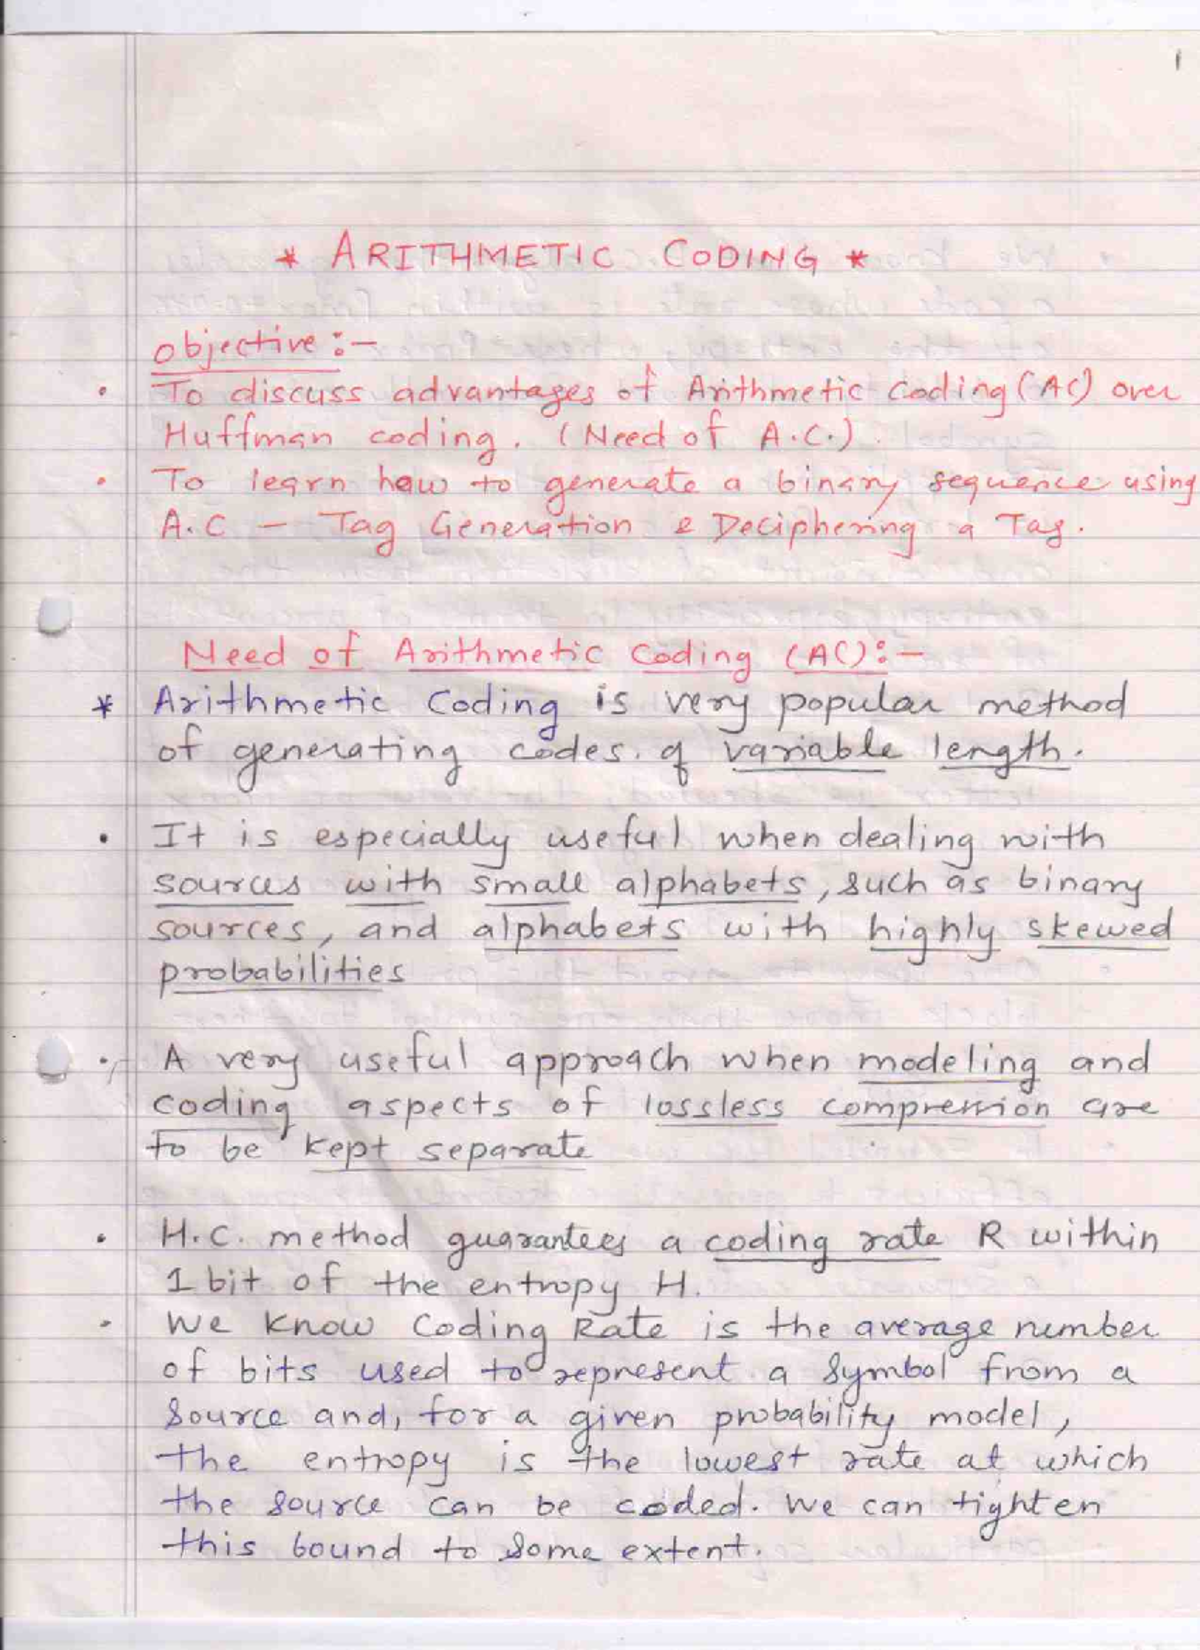 1
* ARITHMETIC CODING *
objective :-
• To discuss advantages of Arithmetic Coding (AC) over
Huffman coding. (Need of A.C.)
• To learn how to generate a binary sequence using
A.C - Tag Generation & Deciphering a Tag.
Need of Arithmetic Coding (AC):-
* Arithmetic Coding is very popular method
of generating codes. of variable length.
• It is especially useful when dealing with
sources with small alphabets, such as binary
sources, and alphabets with highly skewed
probabilities
• A very useful approach when modeling and
coding aspects of lossless compression are
to be kept separate
• H.C. method guarantees a coding rate R within
1 bit of the entropy H.
• We know Coding Rate is the average number
of bits used to represent a symbol from a
source and, for a given probability model,
the entropy is the lowest rate at which
the source can be coded. We can tighten
this bound to some extent.